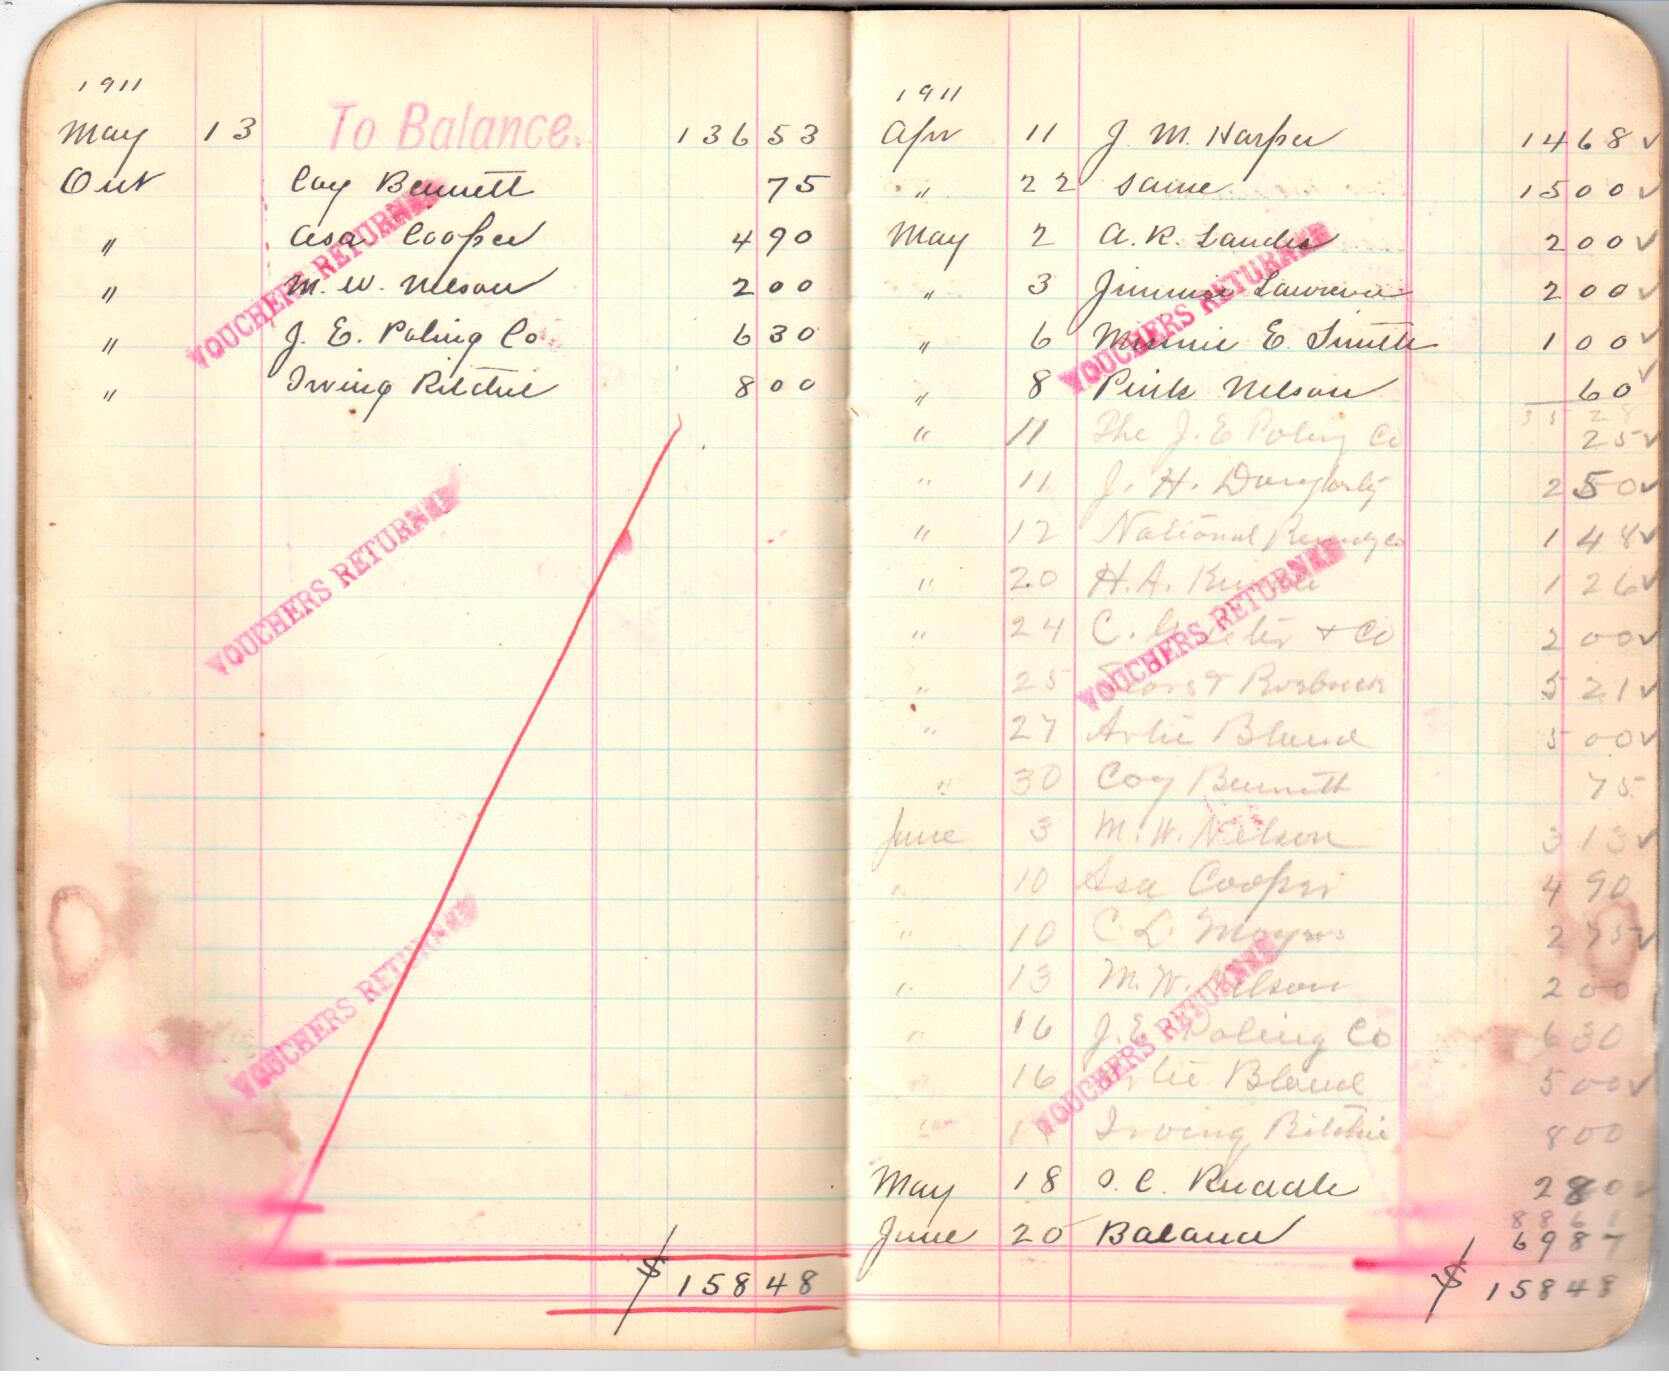 1911
May 13 To Balance. 136 53
Out Coy Bennett 75
" Asa Cooper 4 90
" M. W. Nelson 2 00
" J. E. Poling Co 6 30
" Irving Ritchie 8 00
VOUCHERS RETURNED
VOUCHERS RETURNED
VOUCHERS RETURNED
$ 158 48
1911
Apr 11 J. M. Harper 14 68 ✓
" 22 same 15 00 ✓
May 2 A. R. Landis 2 00 ✓
" 3 Jimmie Lawrence 2 00 ✓
" 6 Minnie E. Smith 1 00 ✓
" 8 Pink Nelson 60 ✓
35 28
" 11 The J. E Poling Co 25 ✓
" 11 J. H. Daugherty 2 50 ✓
" 12 National Remedy Co 1 48 ✓
" 20 H. A. 1 26 ✓
" 24 C. & Co 2 00 ✓
" 25 Sears & Roebuck 5 21 ✓
" 27 Artie Bland 5 00 ✓
" 30 Coy Bennett 75
June 3 M. W. Nelson 3 13 ✓
" 10 Asa Cooper 4 90
" 10 C L Moyers 2 75 ✓
" 13 M. W. Nelson 2 00
" 16 J. E. Poling Co 6 30
" 16 Artie Bland 5 00 ✓
" Irving Ritchie 8 00
May 18 S. C. Ruddle 2 80 ✓
88 61
June 20 Balance 69 87
$ 158 48
VOUCHERS RETURNED
VOUCHERS RETURNED
VOUCHERS RETURNED